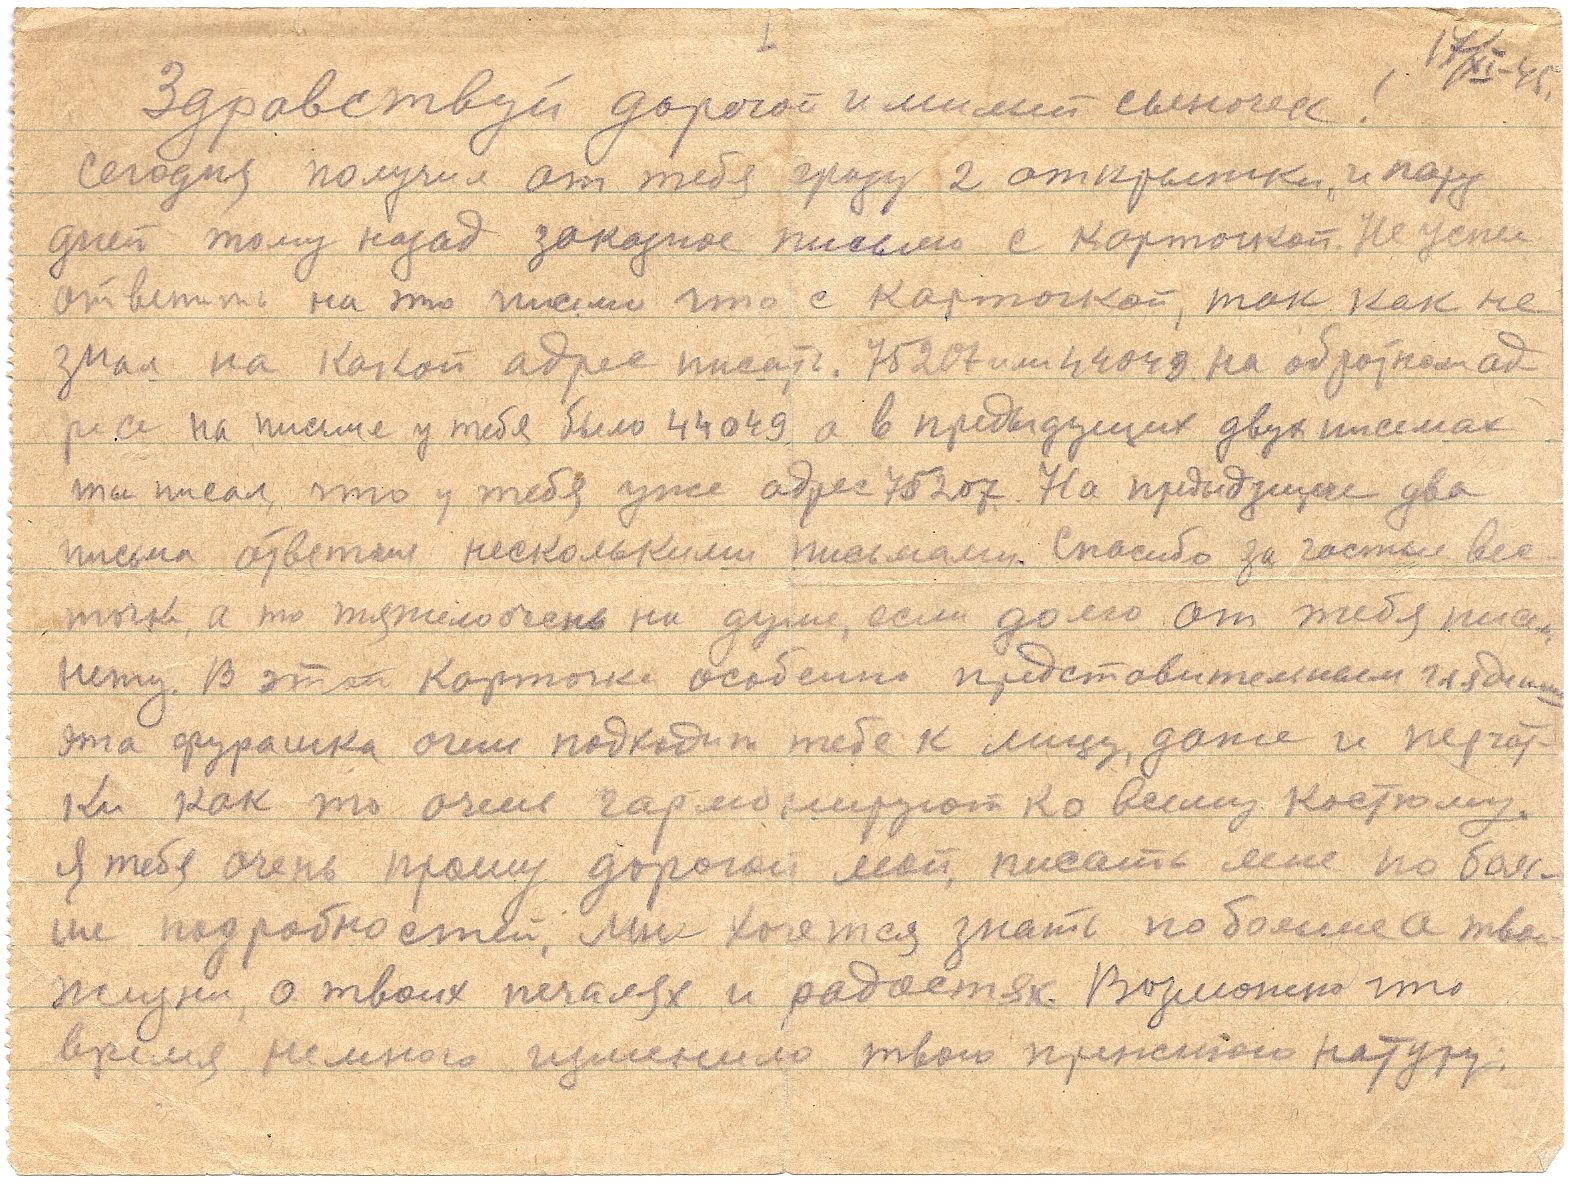 I
17/XI-45.
Здравствуй дорогой и милый сыночек!
Сегодня получил от тебя сразу 2 открытки, и пару
дней тому назад заказное письмо с карточкой Не успел
ответить на это письмо что с карточкой, так как не
знал на какой адрес писать. 75207 или 44049 на обратном ад
ресе на письме у тебя было 44049 а в предыдущих двух письмах
ты писал, что у тебя уже адрес 75207. На предыдущие два
письма ответил несколькими письмами. Спасибо за частые вес-
точки, а то тяжело очень на душе, если долго от тебя писем
нету. В этой карточке особенно представительным
эта фуражка очень подходит тебе к лицу, даже и перчат-
ки как то очень гармонируют ко всему костюму.
Я тебя очень прошу дорогой мой, писать мне по боль-
ше подробностей, мне хочется знать по больше о твоей
жизни, о твоих печалях и радостях. Возможно что
время немного изменило твою прежнюю натуру.